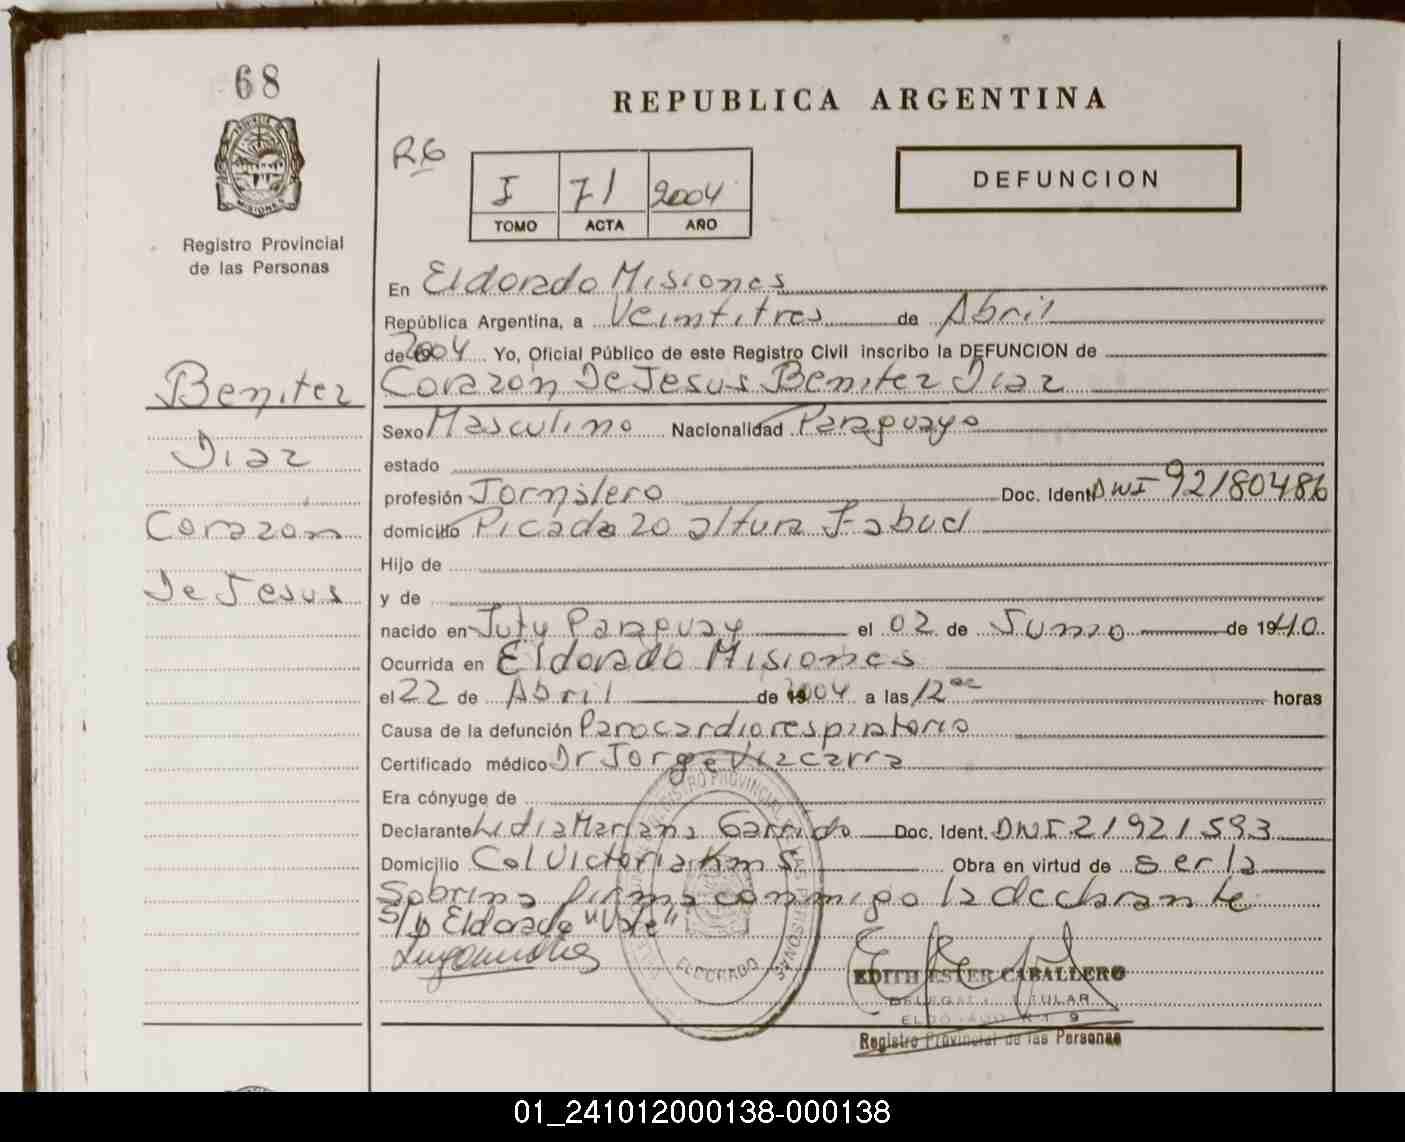 68
Registro Provincial
de las Personas
Benitez
Diaz
Corazón
De Jesus
REPUBLICA ARGENTINA
R6
I 71 2004
TOMO ACTA AÑO
DEFUNCION
En Eldorado Misiones
República Argentina, a Veintitres de Abril
de 2004 Yo, Oficial Público de este Registro Civil inscribo la DEFUNCION de
Corazón De Jesus Benitez Diaz
Sexo Masculino Nacionalidad Paraguayo
estado
profesión Jornalero Doc. Ident. DNI 92180486
domicilio Picada 20 altura
Hijo de
y de
nacido en Juty Paraguay el 02 de Junio de 1940
Ocurrida en Eldorado Misiones
el 22 de Abril de 2004 a las 12 horas
Causa de la defunción Parocardiorespiratorio
Certificado médico Dr Jorge Vizcarra
Era cónyuge de
Declarante Lidia Mariana Garrido Doc. Ident. DNI 21921593
Domicilio Col Victoria Km 5 Obra en virtud de ser la
Sobrina firma conmigo la declarante
S/B Eldorado "Vale"
ELDORADO
EDITH ESTER CABALLERO
DELEGADA TITULAR
Registro Provincial de las Personas
01_241012000138-000138